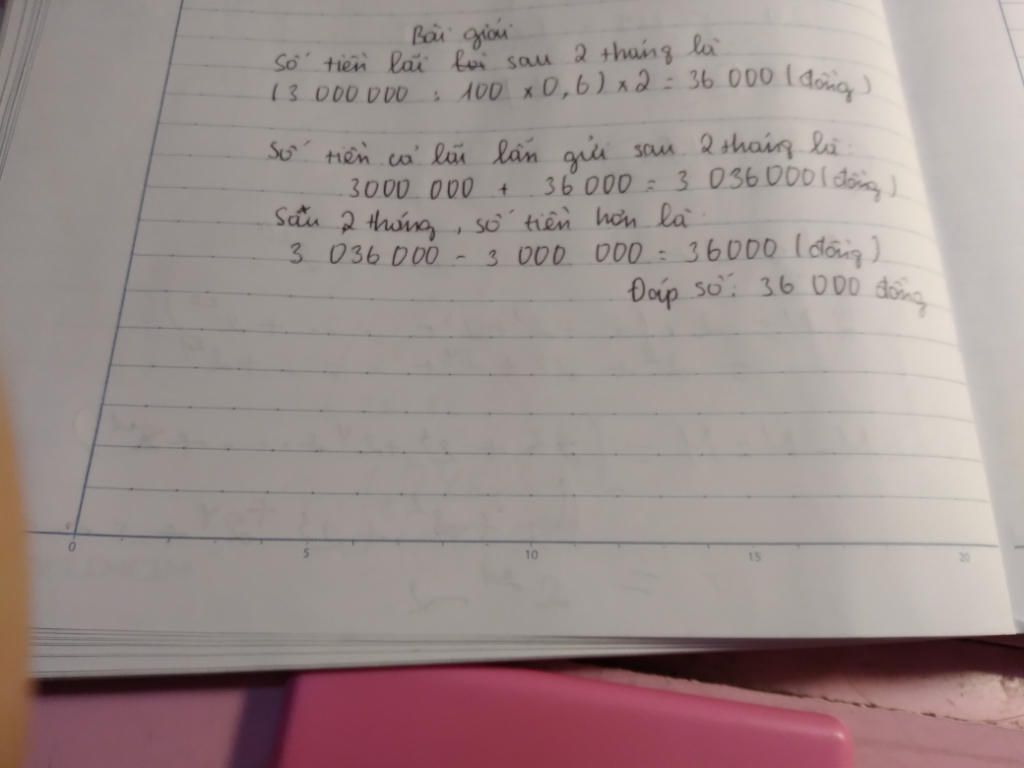 Bài giải
Số tiền lãi sau 2 tháng là
(3 000 000 : 100 x 0,6) x 2 = 36 000 (đồng)
Số tiền cả lãi lẫn gửi sau 2 tháng là:
3000 000 + 36 000 = 3 036000 (đồng)
Sau 2 tháng, số tiền hơn là:
3 036 000 - 3 000 000 = 36000 (đồng)
Đáp số: 36 000 đồng
0 5 10 15 20